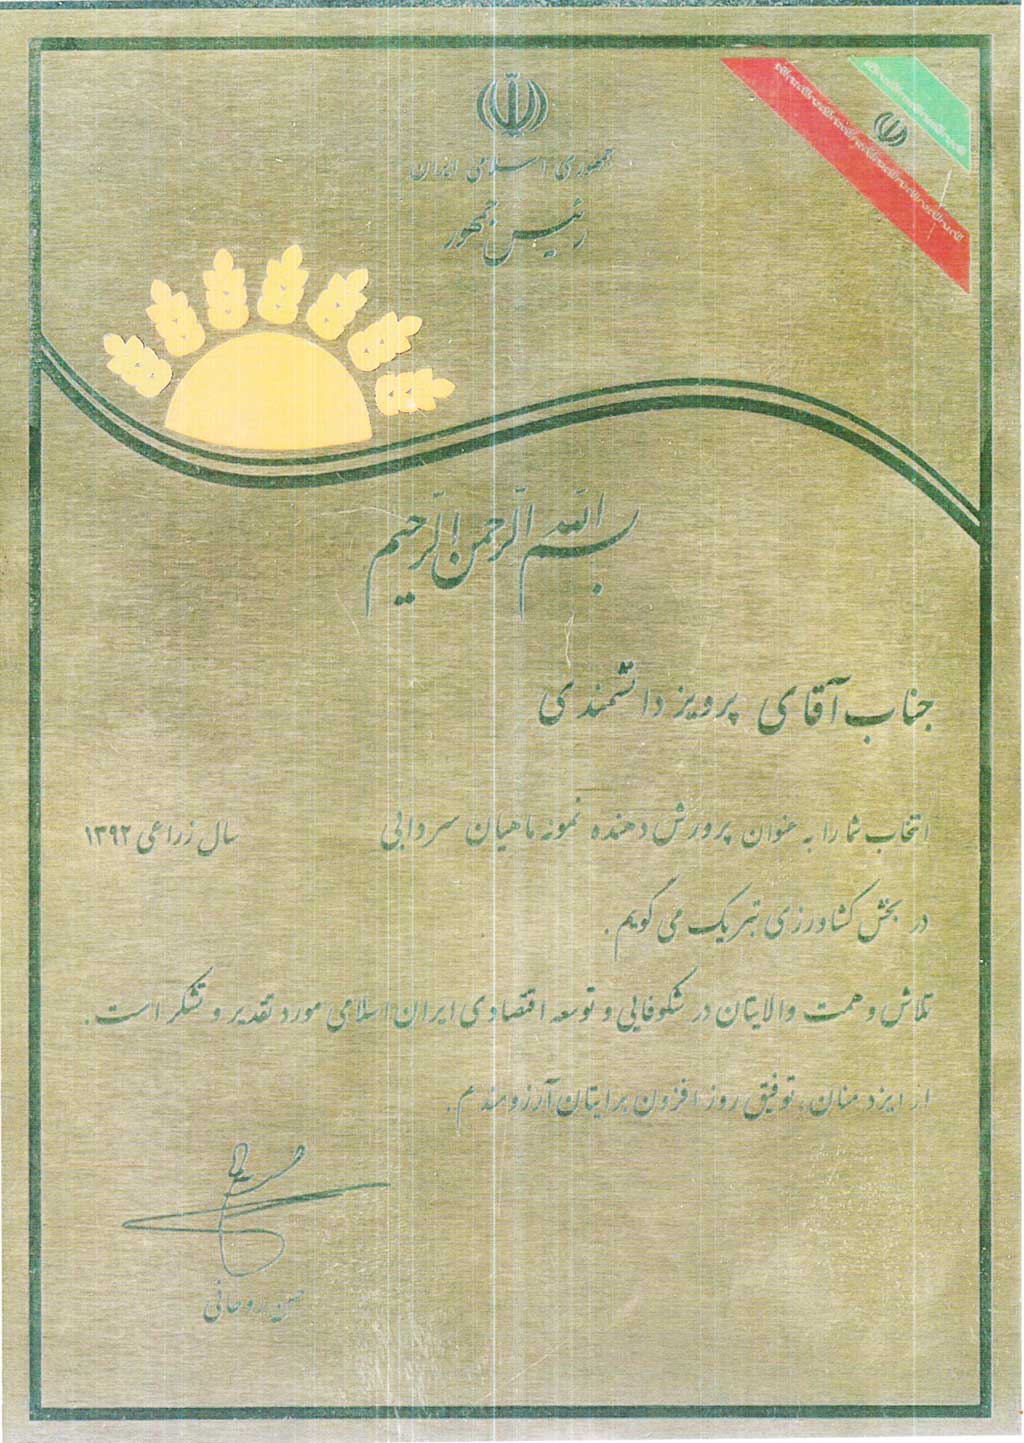 جمهوری اسلامی ایران
رئیس جمهور
بسم الله الرحمن الرحیم
جناب آقای پرویز دانشمندی
انتخاب شما را به عنوان پرورش دهنده نمونه ماهیان سردابی سال زراعی ۱۳۹۲
در بخش کشاورزی تبریک می گویم .
تلاش و همت والایتان در شکوفایی و توسعه اقتصادی ایران اسلامی مورد تقدیر و تشکر است .
از ایزد منان ، توفیق روز افزون برایتان آرزومندم .
حسن روحانی